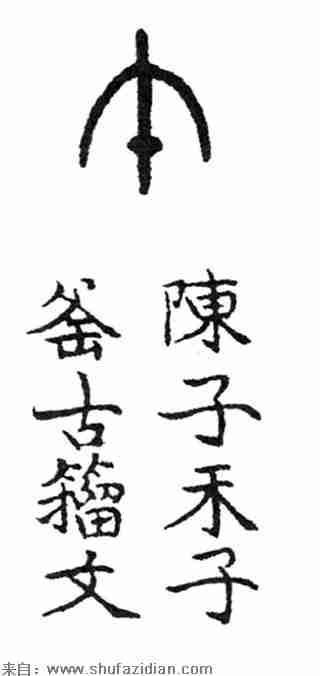 陳子禾子
釜古籕文
来自：www.shufazidian.com